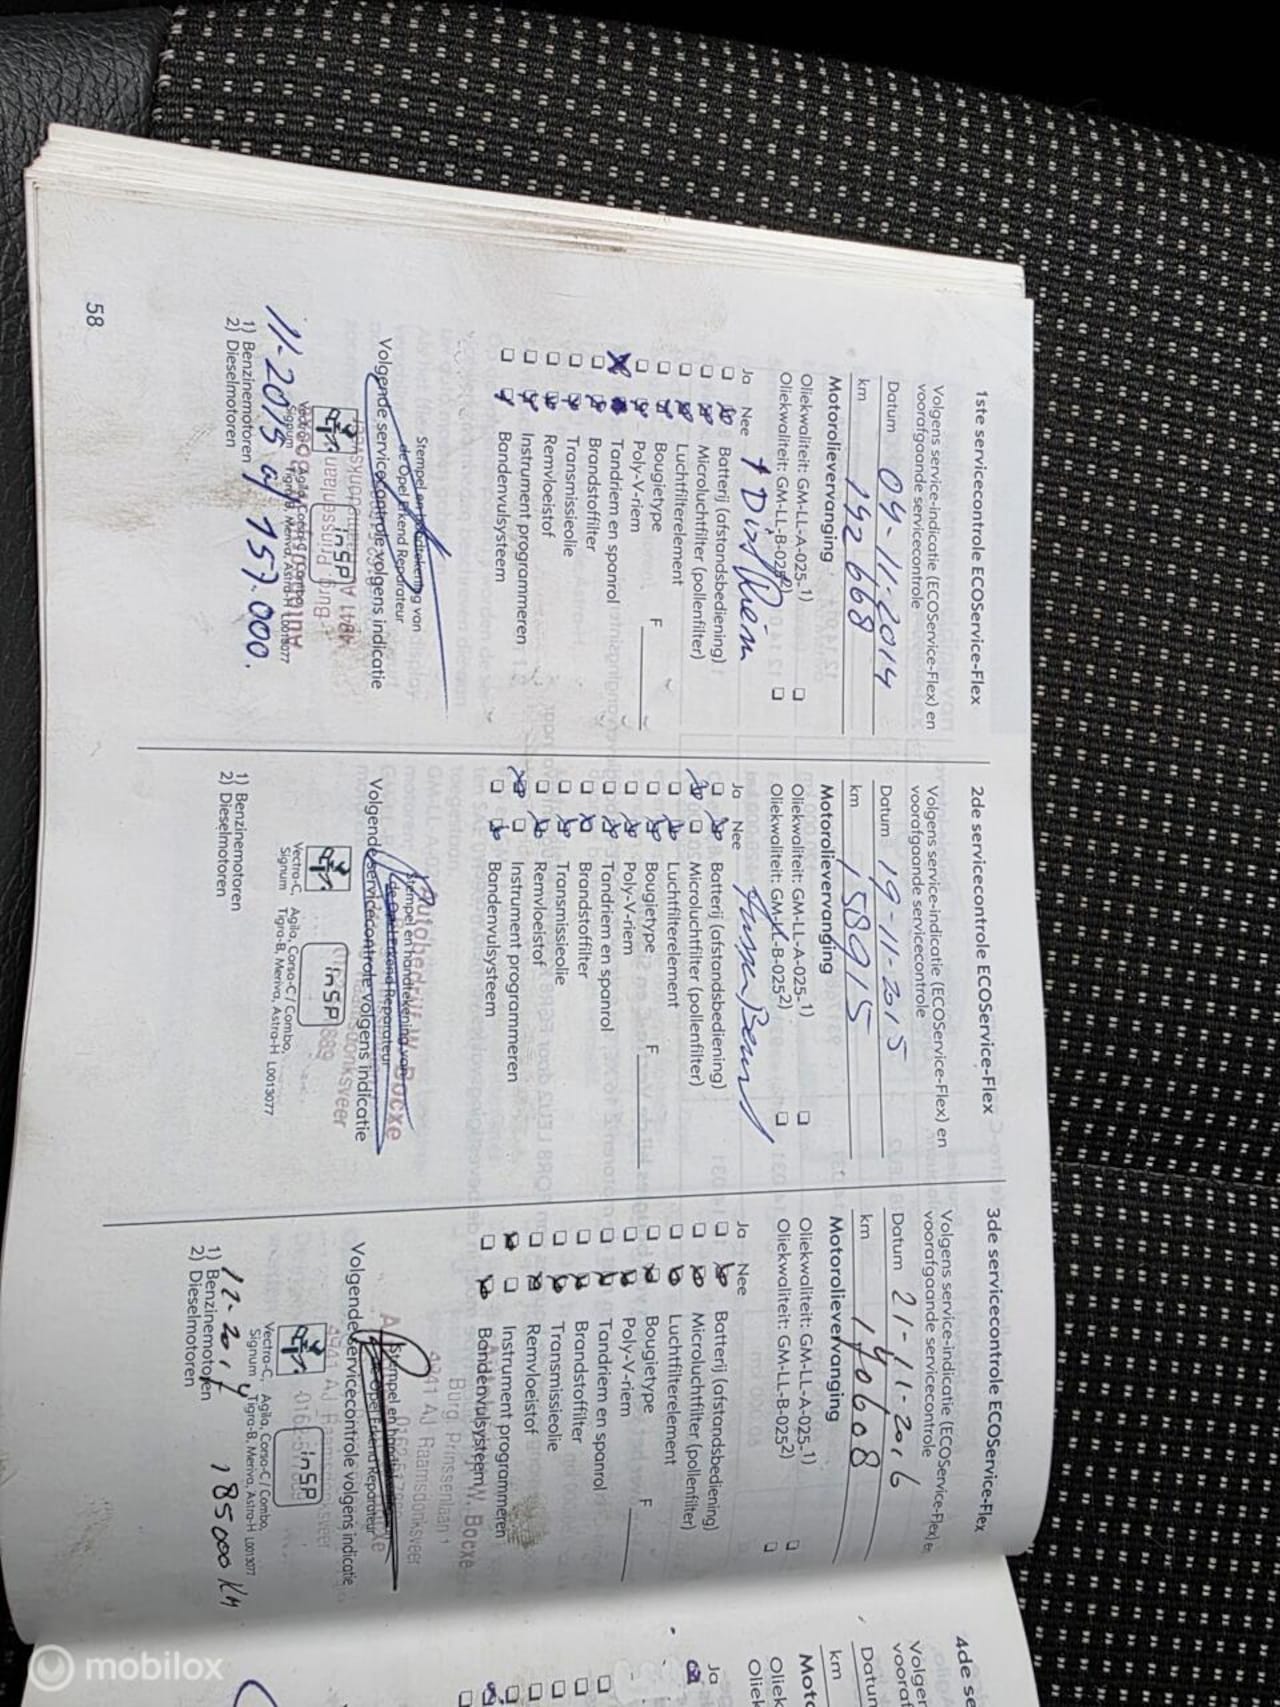 1ste servicecontrole ECOService-Flex
Volgens service-indicatie (ECOService-Flex) en
voorafgaande servicecontrole
Datum 04-11-2014
km 142668
Motorolievervanging
Oliekwaliteit: GM-LL-A-025-1)
Oliekwaliteit: GM-LL-B-0252)
Ja Nee
Batterij (afstandsbediening)
Microluchtfilter (pollenfilter)
Luchtfilterelement
Bougietype F
Poly-V-riem
Tandriem en spanrol
Brandstoffilter
Transmissieolie
Remvloeistof
Instrument programmeren
Bandenvulsysteem
Stempel en handtekening van
de Opel Erkend Reparateur
Volgende servicecontrole volgens indicatie
InSP
11-2015 of 157.000.
1) Benzinemotoren
2) Dieselmotoren
58
2de servicecontrole ECOService-Flex
Volgens service-indicatie (ECOService-Flex) en
voorafgaande servicecontrole
Datum 19-11-2015
km 158915
Motorolievervanging
Oliekwaliteit: GM-LL-A-025-1)
Oliekwaliteit: GM-LL-B-0252)
Ja Nee
Batterij (afstandsbediening)
Microluchtfilter (pollenfilter)
Luchtfilterelement
Bougietype F
Poly-V-riem
Tandriem en spanrol
Brandstoffilter
Transmissieolie
Remvloeistof
Instrument programmeren
Bandenvulsysteem
Autobedrijf W. Bocxe
Stempel en handtekening van
de Opel Erkend Reparateur
Volgende servicecontrole volgens indicatie
InSP
Vectra-C, Agila, Corsa-C / Combo,
Signum Tigra-B, Meriva, Astra-H L0013077
1) Benzinemotoren
2) Dieselmotoren
3de servicecontrole ECOService-Flex
Volgens service-indicatie (ECOService-Flex) en
voorafgaande servicecontrole
Datum 21-11-2016
km 170608
Motorolievervanging
Oliekwaliteit: GM-LL-A-025-1)
Oliekwaliteit: GM-LL-B-0252)
Ja Nee
Batterij (afstandsbediening)
Microluchtfilter (pollenfilter)
Luchtfilterelement
Bougietype F
Poly-V-riem
Tandriem en spanrol
Brandstoffilter
Transmissieolie
Remvloeistof
Instrument programmeren
Bandenvulsysteem
W. Bocxe
Burg. Prinsenlaan 1
4941 AJ Raamsdonksveer
Volgende servicecontrole volgens indicatie
InSP
Vectra-C, Agila, Corsa-C / Combo,
Signum Tigra-B, Meriva, Astra-H L0013077
1) Benzinemotoren
2) Dieselmotoren
185000 KM
4de se
Volgen
vooraf
Datum
km
Moto
Oliek
Oliek
Ja
mobilox